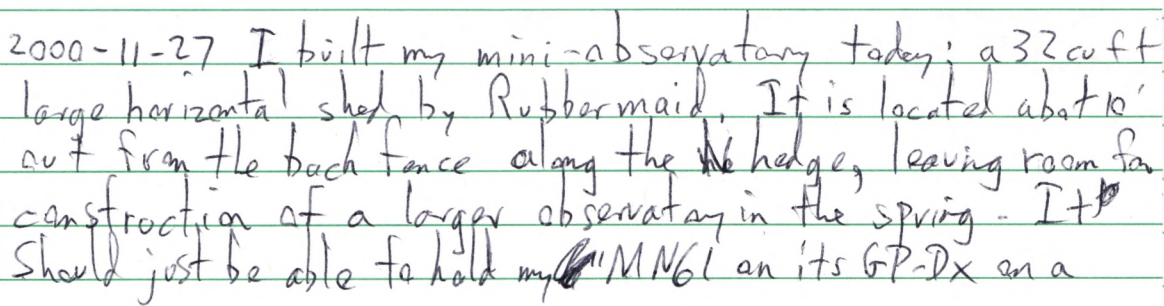 2000-11-27 I built my mini-observatory today; a 32 cu ft
large horizontal shed by Rubbermaid. It is located about 10'
out from the back fence along the hedge, leaving room for
construction of a larger observatory in the spring. It
should just be able to hold my MN61 on its GP-DX on a